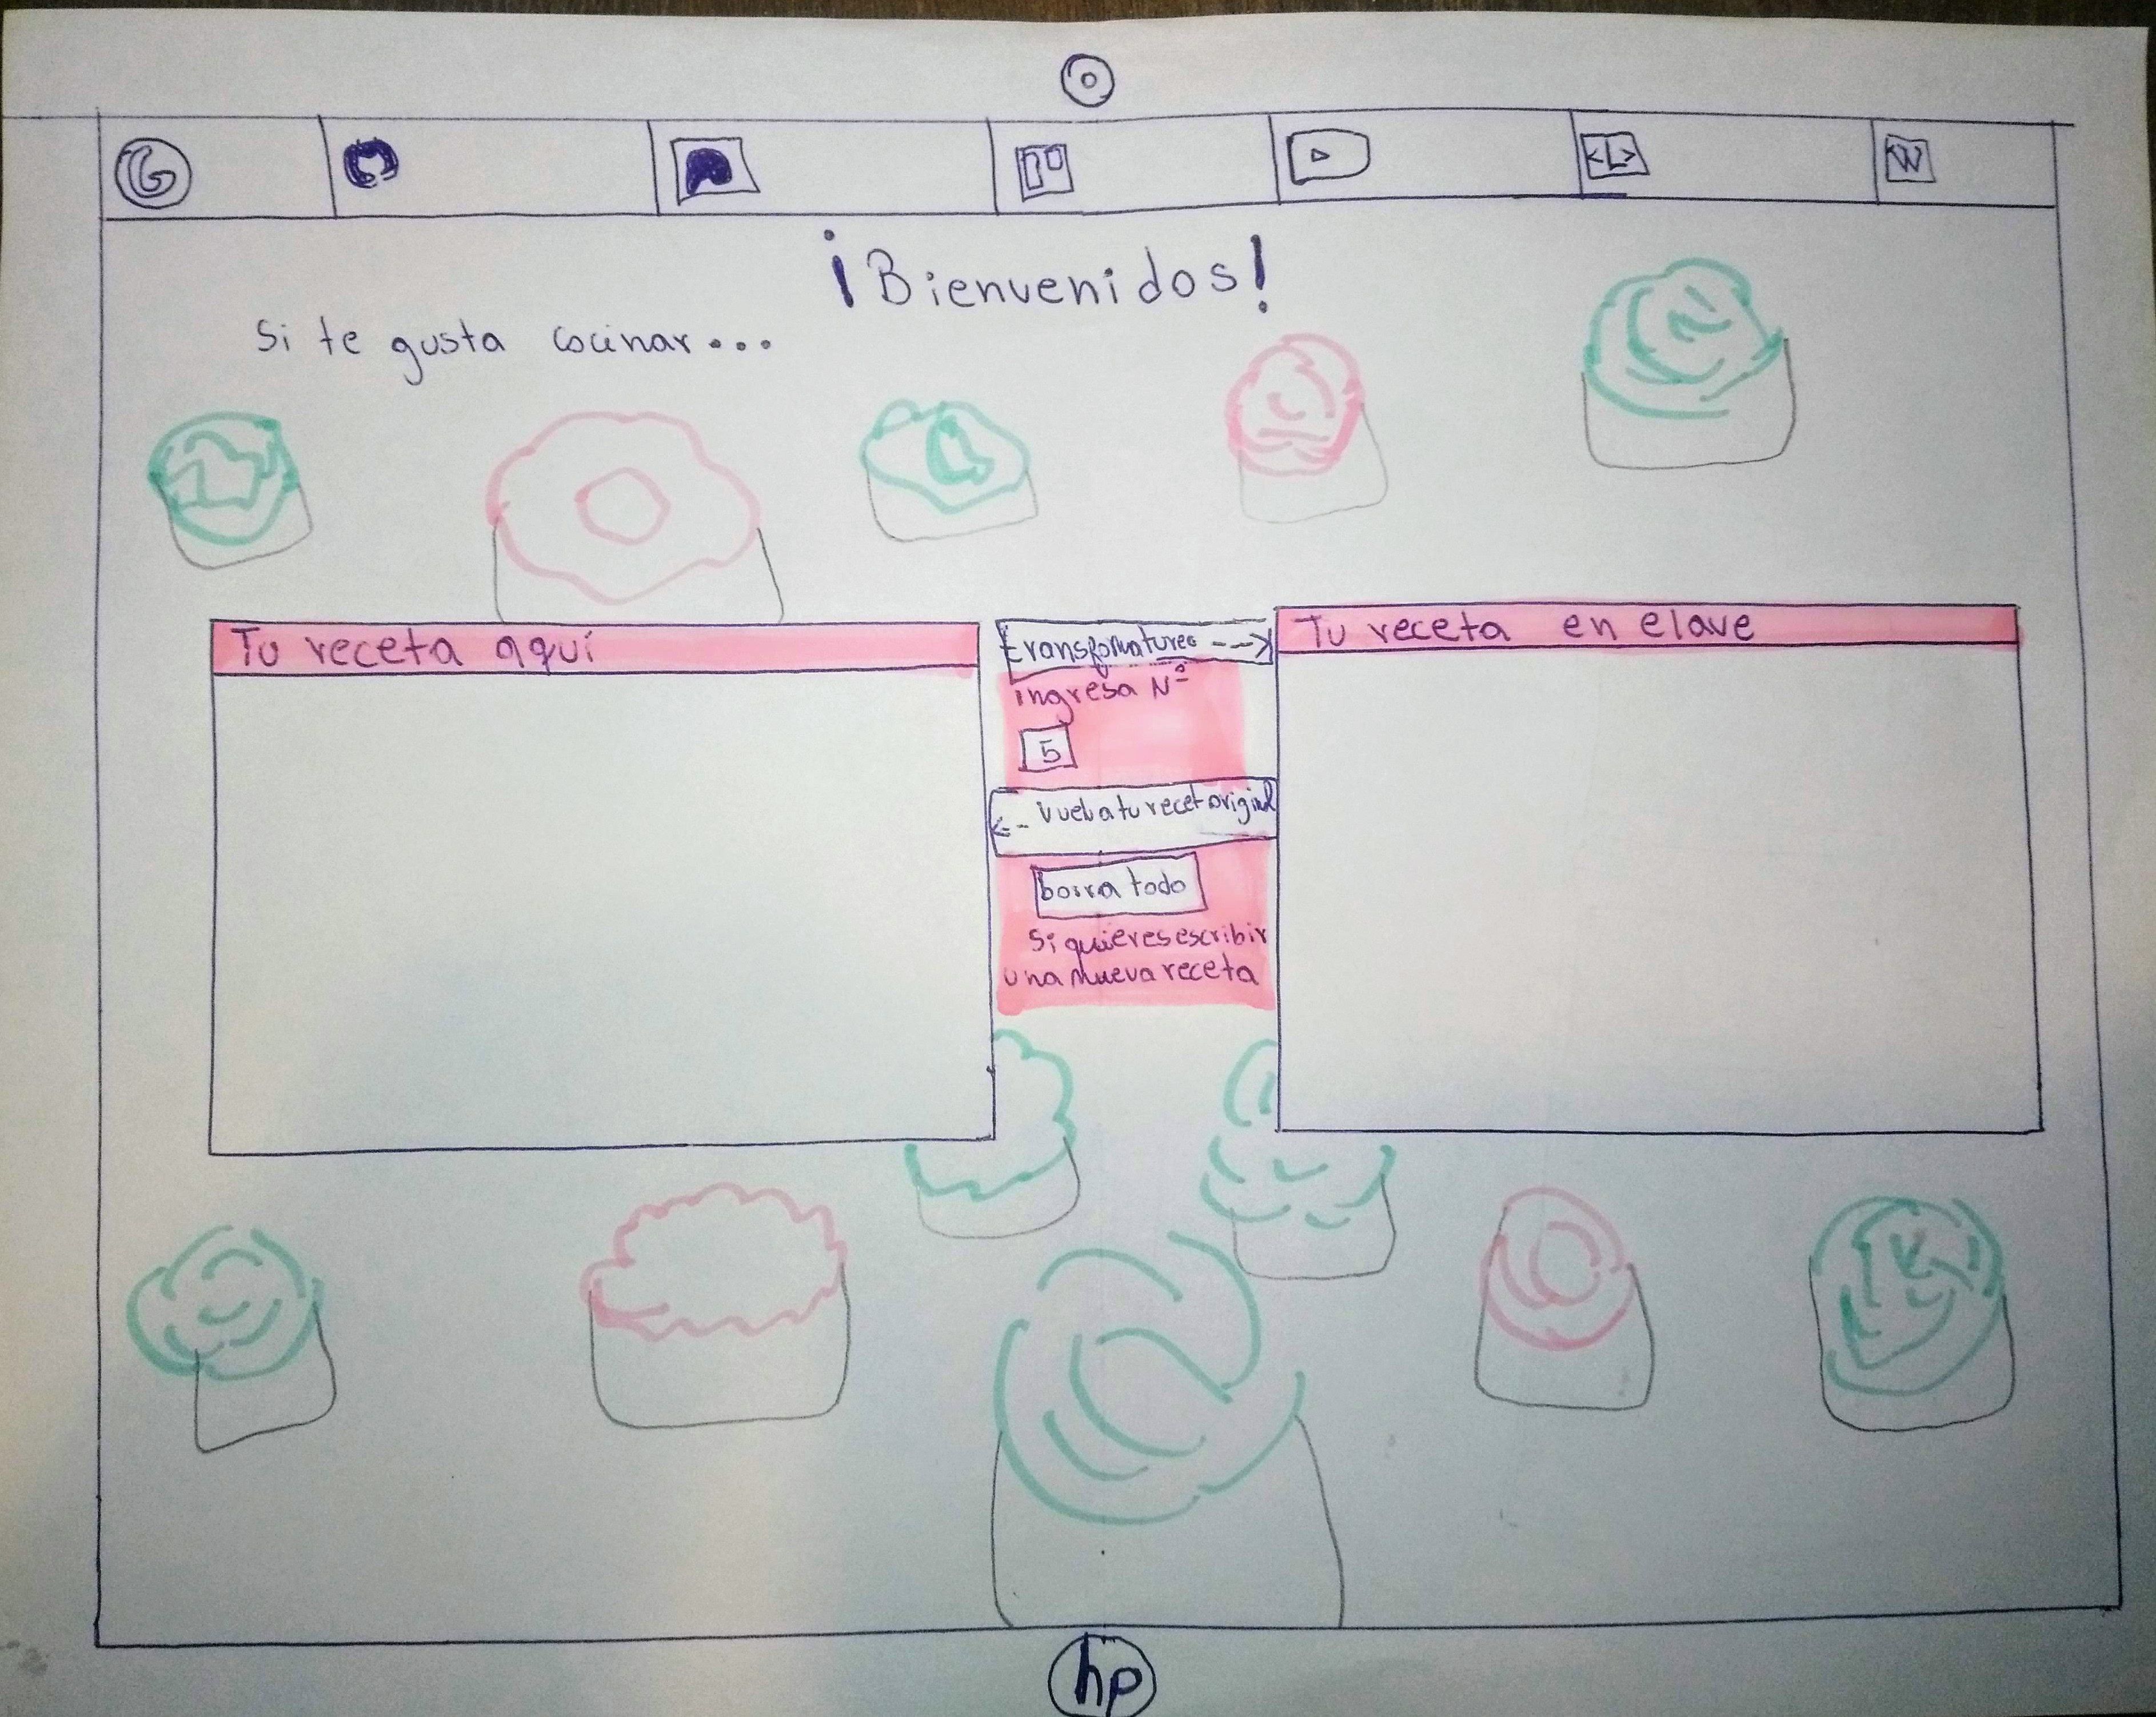 G
<L>
W
¡Bienvenidos!
Si te gusta cocinar...
Tu receta aquí
ingresa Nº
5
Vuelva tu recet original
borra todo
Si quieres escribir
una nueva receta
Tu receta en clave
hp